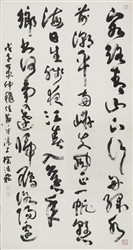 客路青山下行舟綠水
前潮平兩岸闊風正一帆懸
海日生殘夜江春入舊年
鄉書何處達歸雁洛陽邊
戊子